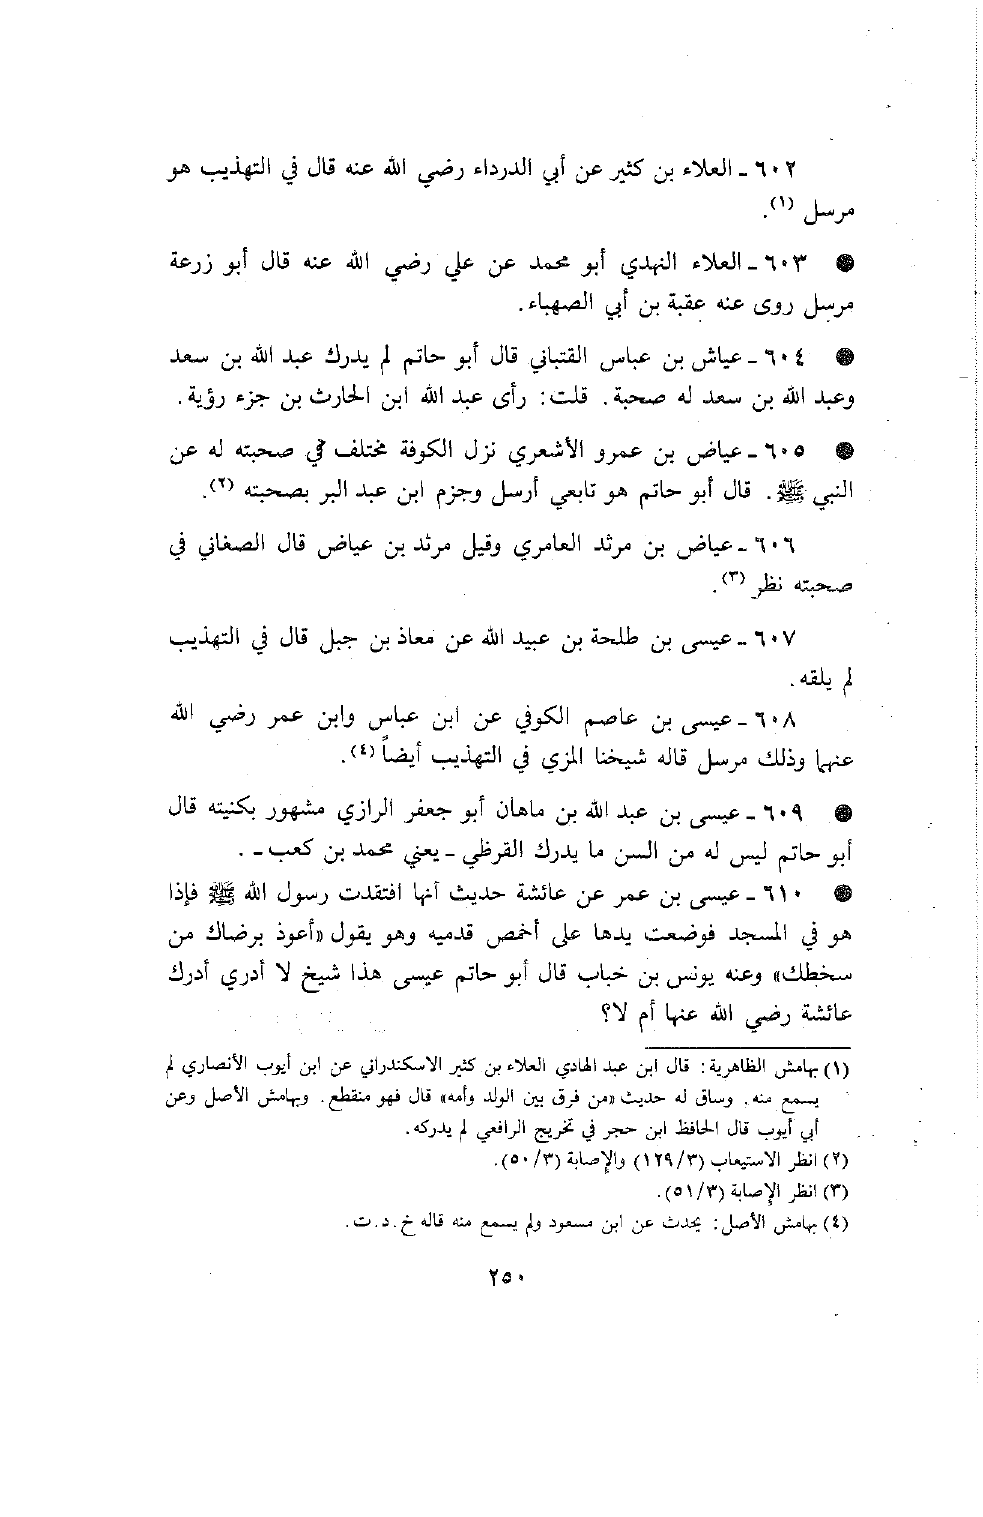 ٦٠٢ ـ العلاء بن كثير عن أبي الدرداء رضي الله عنه قال في التهذيب هو
مرسل (١).
● ٦٠٣ ـ العلاء النهدي أبو محمد عن علي رضي الله عنه قال أبو زرعة
مرسل روى عنه عقبة بن أبي الصهباء.
● ٦٠٤ ـ عياش بن عباس القتباني قال أبو حاتم لم يدرك عبد الله بن سعد
وعبد الله بن سعد له صحبة. قلت: رأى عبد الله ابن الحارث بن جزء رؤية.
● ٦٠٥ ـ عياض بن عمرو الأشعري نزل الكوفة مختلف في صحبته له عن
النبي ﷺ. قال أبو حاتم هو تابعي أرسل وجزم ابن عبد البر بصحبته (٢).
٦٠٦ ـ عياض بن مرثد العامري وقيل مرثد بن عياض قال الصغاني في
صحبته نظر (٣).
٦٠٧ ـ عيسى بن طلحة بن عبيد الله عن معاذ بن جبل قال في التهذيب
لم يلقه.
٦٠٨ ـ عيسى بن عاصم الكوفي عن ابن عباس وابن عمر رضي الله
عنهما وذلك مرسل قاله شيخنا المزي في التهذيب أيضاً (٤).
● ٦٠٩ ـ عيسى بن عبد الله بن ماهان أبو جعفر الرازي مشهور بكنيته قال
أبو حاتم ليس له من السن ما يدرك القرظي ـ يعني محمد بن كعب ـ .
● ٦١٠ ـ عيسى بن عمر عن عائشة حديث أنها افتقدت رسول الله ﷺ فإذا
هو في المسجد فوضعت يدها على أخمص قدميه وهو يقول «أعوذ برضاك من
سخطك» وعنه يونس بن خباب قال أبو حاتم عيسى هذا شيخ لا أدري أدرك
عائشة رضي الله عنها أم لا؟
(١) بهامش الظاهرية: قال ابن عبد الهادي العلاء بن كثير الاسكندراني عن ابن أيوب الأنصاري لم
يسمع منه. وساق له حديث «من فرق بين الولد وأمه» قال فهو منقطع. وبهامش الأصل وعن
أبي أيوب قال الحافظ ابن حجر في تخريج الرافعي لم يدركه.
(٢) انظر الاستيعاب (١٢٩/٣) والإصابة (٥٠/٣).
(٣) انظر الإصابة (٥١/٣).
(٤) بهامش الأصل: يحدث عن ابن مسعود ولم يسمع منه قاله خ.د.ت.
٢٥٠